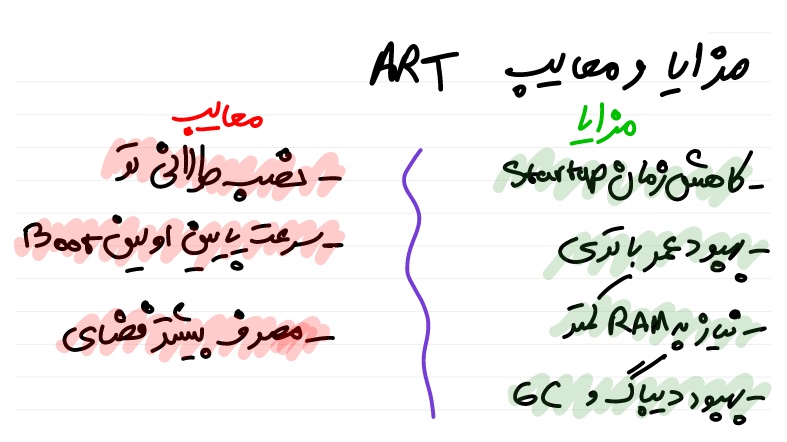 مزایا و معایب ART
مزایا
- کاهش زمان Startup
- بهبود عمر باتری
- نیاز به RAM کمتر
- بهبود دیباگ و GC
معایب
- نصب طولانی تر
- سرعت پایین اولین Boot
- مصرف بیشتر فضای